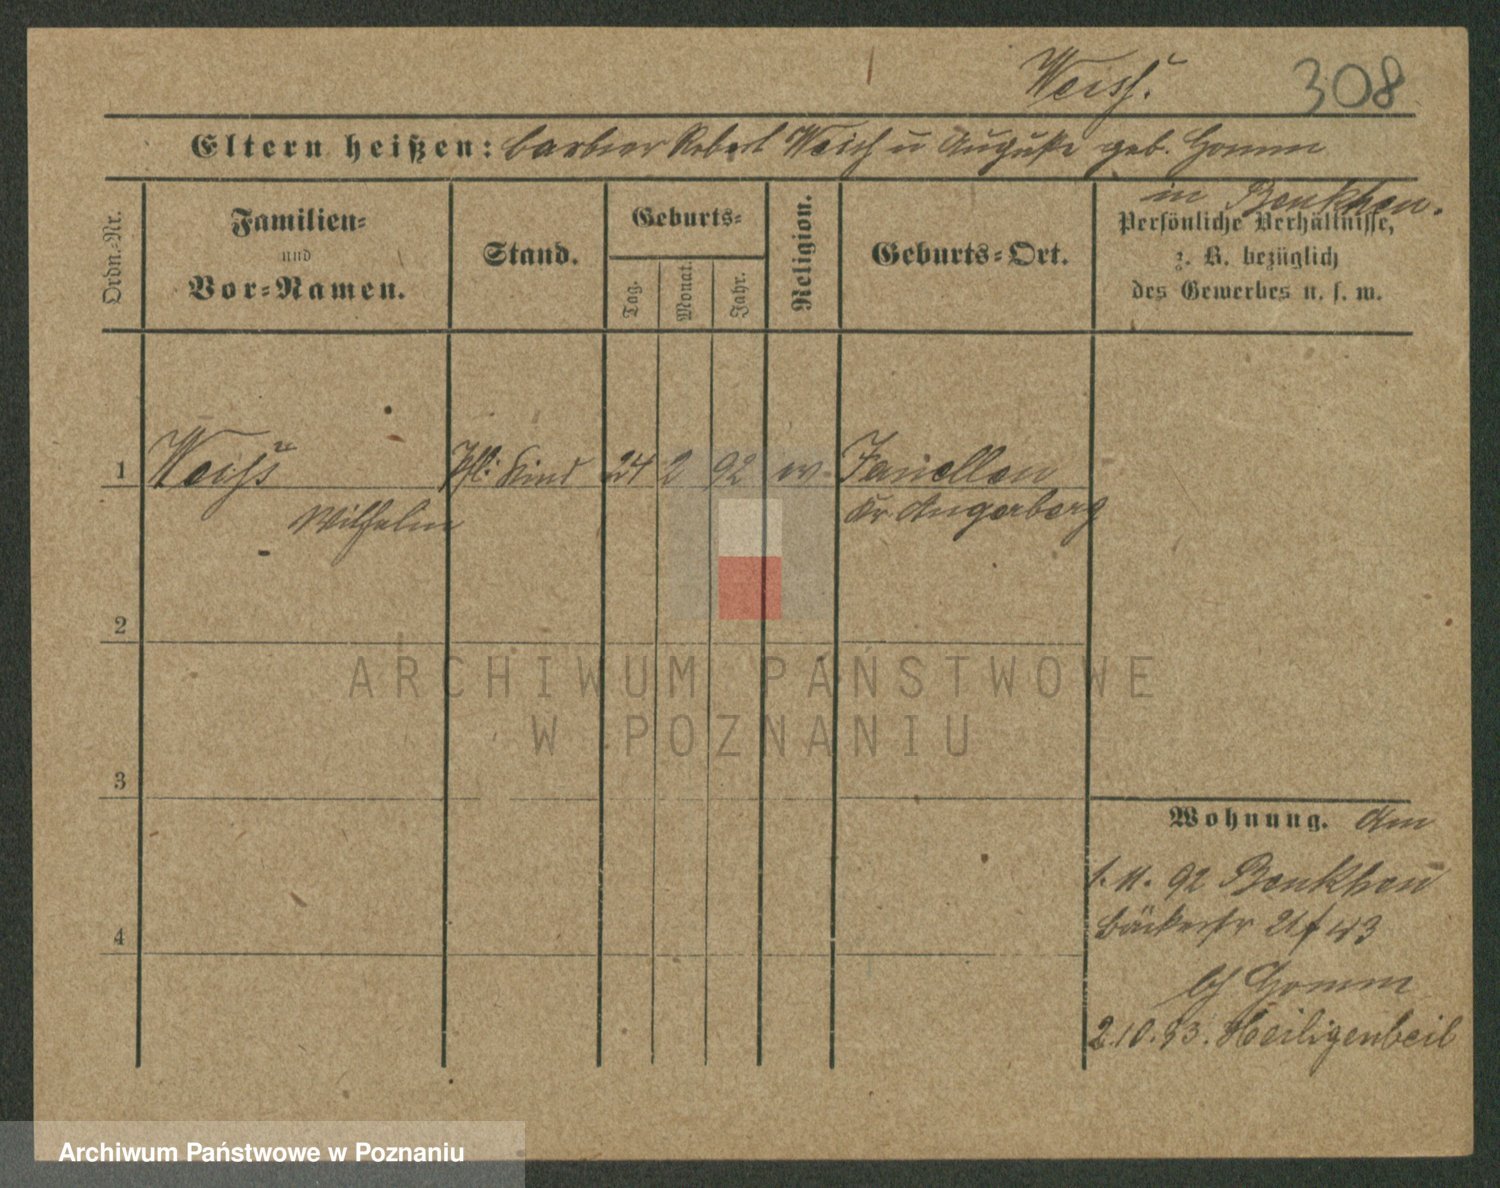 Weiß. 308
Eltern heißen: Barbier Robert Weiß u Auguste geb. Gomm
in Benkheim.
Ordn.-Nr.
Familien-
und
Vor-Namen.
Stand.
Geburts-
Tag.
Monat.
Jahr.
Religion.
Geburts-Ort.
Persönliche Verhältnisse,
z. B. bezüglich
des Gewerbes u. s. w.
1 Weiß Pfl: Kind 24 2 92 ev.
Wilhelm Kr. Angerburg
2
3
4
Wohnung. Am
1. 11. 92 Benkheim
Bäckerstr 21/
b/ Gomm
2.10.93. Heiligenbeil
ARCHIWUM PAŃSTWOWE
W POZNANIU
Archiwum Państwowe w Poznaniu